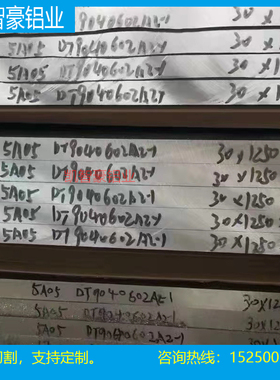 智豪铝业
9040602A2-1 30×1250
5A05 DT9040602A2-1 30×1250
5A05 DT9040602A2-1 30×1250
5A05 DT9040602A2-1 30×1250
5A05 DT9040602A2-1 30×1250
5A05 DT9040602A2-1 30×1250
5A05 DT9040602A2-1 30×1250
5A05 DT9040602A2-1 30×1250
5A05 DT9040602A2-1 30×1250
5A05 DT9040602A2-1 30×125
5A05 DT9040602A2-1 30×12
5A05 DT9040602A2-1
切割，支持定制。 咨询热线：152500